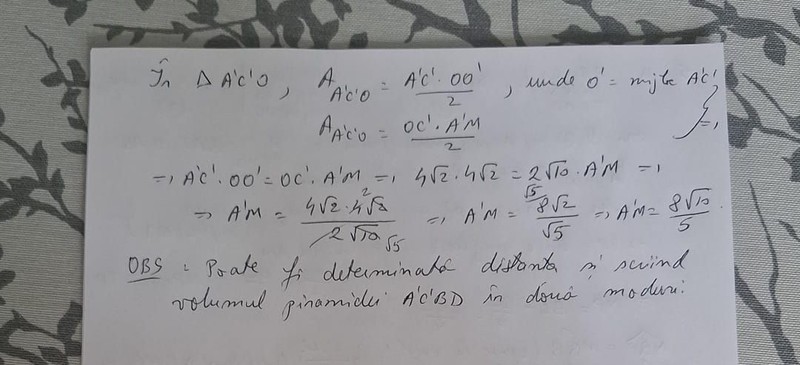 În Δ A'C'O, A A'C'O = A'C' · OO' / 2, unde O' = mijlc A'C'
A A'C'O = OC' · A'M / 2 } =>
=> A'C' · OO' = OC' · A'M => 4√2 · 4√2 = 2√10 · A'M =>
=> A'M = 4√2 · 4√2 2 / 2√10 √5 => A'M = √5 8√2 / √5 => A'M = 8√10 / 5
OBS : Poate fi determinată distanța și scriind
volumul piramidei A'C'BD în două moduri.